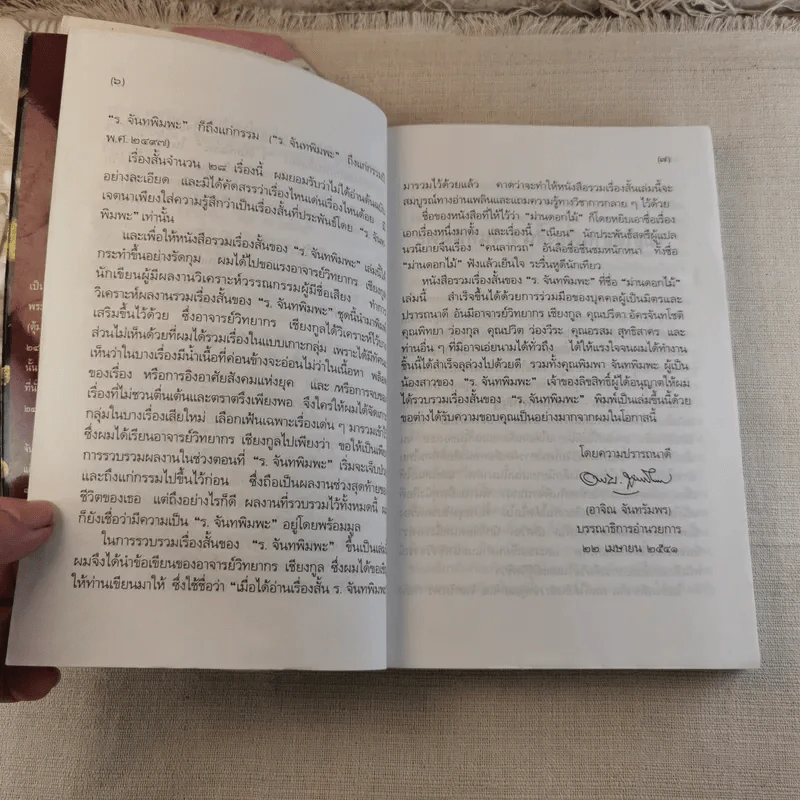 (๖)
“ร. จันทพิมพะ” ก็ถึงแก่กรรม (“ร. จันทพิมพะ” ถึงแก่กรรมปี
พ.ศ. ๒๔๙๗)
เรื่องสั้นจำนวน ๒๘ เรื่องนี้ ผมยอมรับว่าไม่ได้อ่านต้นฉบับ
อย่างละเอียด และมิได้คัดสรรว่าเรื่องไหนเด่นเรื่องไหนด้อย
เจตนาเพียงใส่ความรู้สึกว่าเป็นเรื่องสั้นที่ประพันธ์โดย “ร. จันท
พิมพะ” เท่านั้น
และเพื่อให้หนังสือรวมเรื่องสั้นของ “ร. จันทพิมพะ” เล่มนี้ได้
กระทำขึ้นอย่างรัดกุม ผมได้ไปขอแรงอาจารย์วิทยากร เชียงกูล
นักเขียนผู้มีผลงานวิเคราะห์วรรณกรรมผู้มีชื่อเสียง ทำการ
วิเคราะห์ผลงานรวมเรื่องสั้นของ “ร. จันทพิมพะ” ชุดนี้นำมาพิมพ์
เสริมขึ้นไว้ด้วย ซึ่งอาจารย์วิทยากร เชียงกูลได้วิเคราะห์ไว้
ส่วนไม่เห็นด้วยที่ผมได้รวมเรื่องในแบบเกาะกลุ่ม เพราะได้มีทัศนะ
เห็นว่าในบางเรื่องมีน้ำเนื้อที่ค่อนข้างจะอ่อนไปว่าในเนื้อหา
ของเรื่อง หรือการอิงอาศัยสังคมแห่งยุค และ /หรือการจบของ
เรื่องที่ไม่ชวนตื่นเต้นและตราตรึงเพียงพอ จึงใคร่ให้ผมได้จัดเกาะ
กลุ่มในบางเรื่องเสียใหม่ เลือกเฟ้นเฉพาะเรื่องเด่น ๆ มารวมเข้าไว้
ซึ่งผมได้เรียนอาจารย์วิทยากร เชียงกูลไปเพียงว่า ขอให้เป็น
การรวบรวมผลงานในช่วงตอนที่ “ร. จันทพิมพะ” เริ่มจะเจ็บป่วย
และถึงแก่กรรมไปขึ้นไว้ก่อน ซึ่งถือเป็นผลงานช่วงสุดท้ายของ
ชีวิตของเธอ แต่ถึงอย่างไรก็ดี ผลงานที่รวบรวมไว้ทั้งหมดนี้
ก็ยังเชื่อว่ามีความเป็น “ร. จันทพิมพะ” อยู่โดยพร้อมมูล
ในการรวบรวมเรื่องสั้นของ “ร. จันทพิมพะ” ขึ้นเป็นเล่ม
ผมจึงได้นำข้อเขียนของอาจารย์วิทยากร เชียงกูล ซึ่งผมได้ขอ
ให้ท่านเขียนมาให้ ซึ่งใช้ชื่อว่า “เมื่อได้อ่านเรื่องสั้น ร. จันทพิมพะ
(๗)
มารวมไว้ด้วยแล้ว คาดว่าจะทำให้หนังสือรวมเรื่องสั้นเล่มนี้จะ
สมบูรณ์ทางอ่านเพลินและแถมความรู้ทางวิชาการกลาย ๆ ไว้ด้วย
ชื่อของหนังสือที่ให้ไว้ว่า “ม่านดอกไม้” ก็โดยหยิบเอาชื่อเรื่อง
เอกเรื่องหนึ่งมาตั้ง และเรื่องนี้ “เนียน” นักประพันธ์สตรีผู้แปล
นวนิยายจีนเรื่อง “คนลากรถ” อันลือชื่อชื่นชมหนักหนา ทั้งชื่อ
“ม่านดอกไม้” ฟังแล้วเย็นใจ ระรื่นหูดีนักเทียว
หนังสือรวมเรื่องสั้นของ “ร. จันทพิมพะ” ที่ชื่อ “ม่านดอกไม้”
เล่มนี้ สำเร็จขึ้นได้ด้วยการร่วมมือของบุคคลผู้เป็นมิตรและ
ปรารถนาดี อันมีอาจารย์วิทยากร เชียงกูล คุณปรีดา อัครจันทโชติ
คุณพิทยา ว่องกุล คุณปวิต ว่องวีระ คุณอรสม สุทธิสาคร และ
ท่านอื่น ๆ ที่มิอาจเอ่ยนามได้ทั่วถึง ได้ให้แรงใจจนผมได้ทำงาน
ชิ้นนี้ได้สำเร็จลุล่วงไปด้วยดี รวมทั้งคุณพิมพา จันทพิมพะ ผู้เป็น
น้องสาวของ “ร. จันทพิมพะ” เจ้าของลิขสิทธิ์ผู้ได้อนุญาตให้ผม
ได้รวบรวมเรื่องสั้นของ “ร. จันทพิมพะ” พิมพ์เป็นเล่มขึ้นนี้ด้วย
ขอต่างได้รับความขอบคุณเป็นอย่างมากจากผมในโอกาสนี้
โดยความปรารถนาดี
(อาจิณ จันทรัมพร)
บรรณาธิการอำนวยการ
๒๒ เมษายน ๒๕๔๑